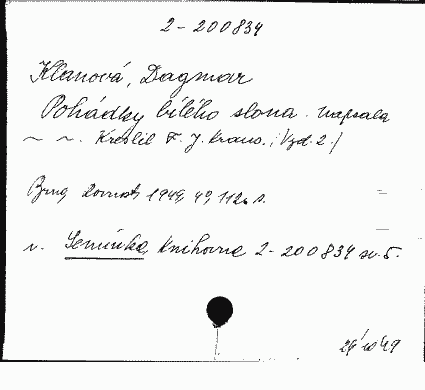 2-200834
Klanová, Dagmar
Pohádky bílého slona. Napsala
~ ~. Kreslil F. J. Kraus. (Vyd. 2.)
Brno 1949, 4°, 112 s.
v. Semínka, Knihovna 2-200834 sv. 5.